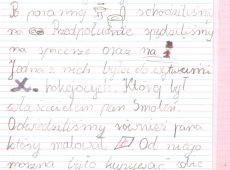 Po para inny schodziliśmy
na Przedpołudnie spędziliśmy
na spacerze oraz na
Jedna z nich była do wytwórni
kolejowych. Której był
właścicielem pan Smoleń.
Odwiedziliśmy również pana
który malował Od niego
można było kupować